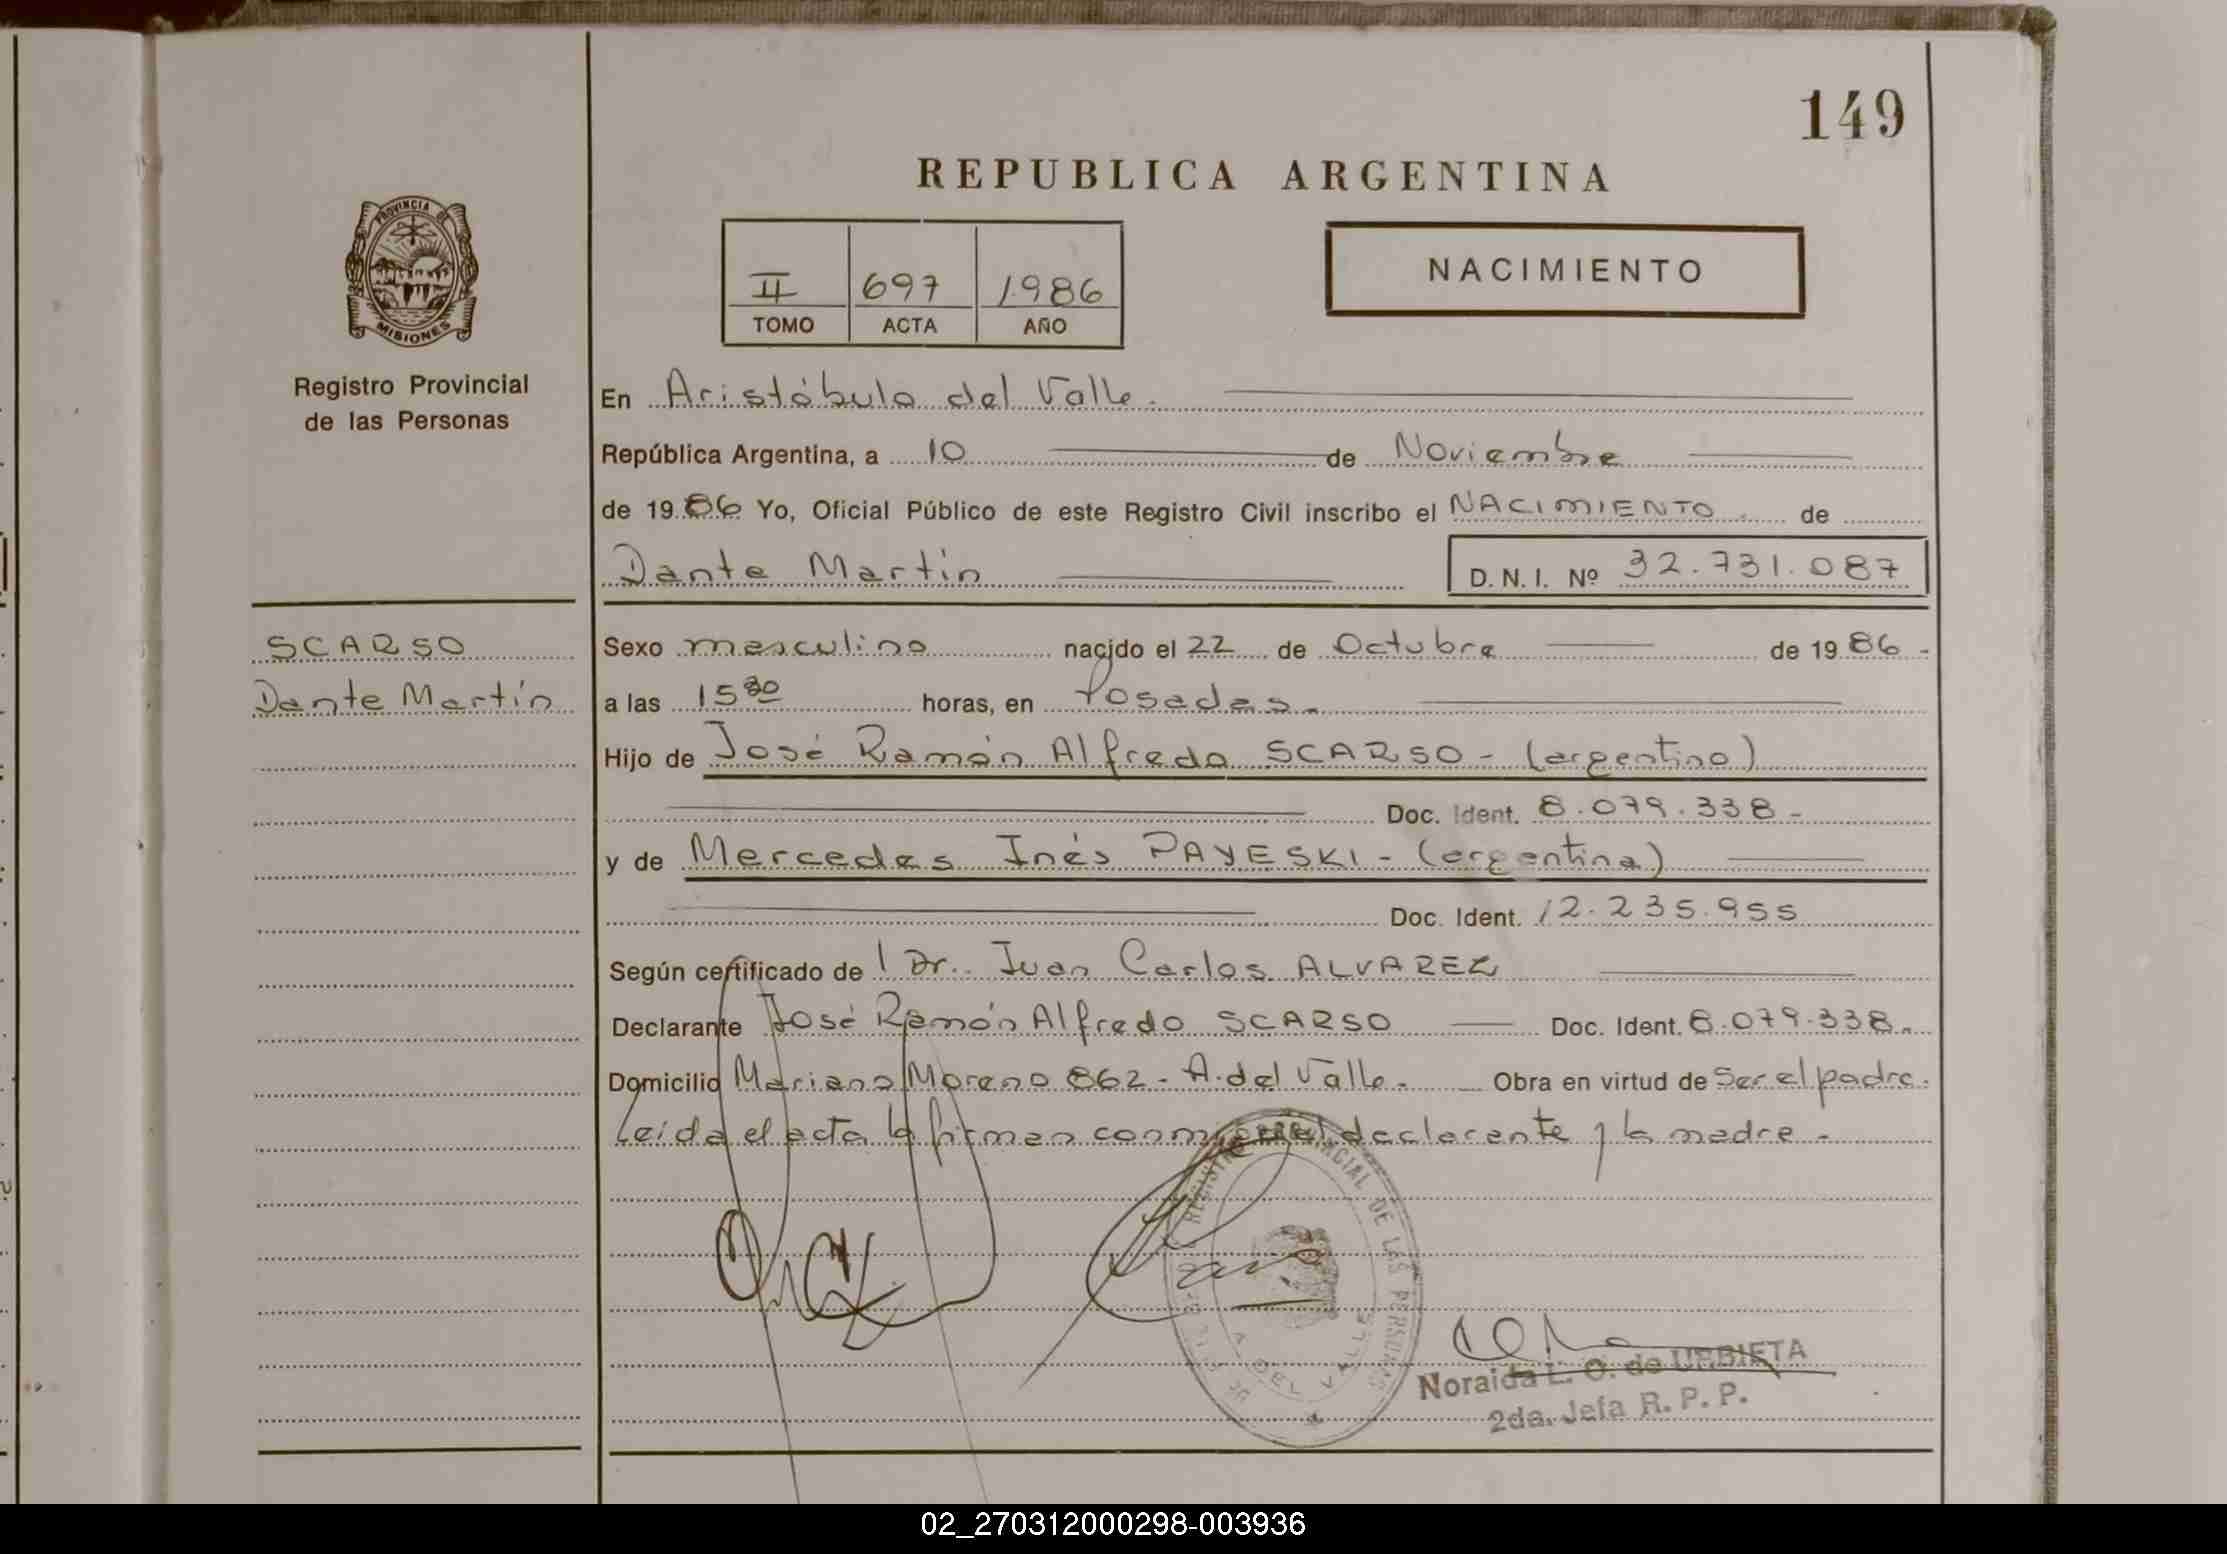 149
REPUBLICA ARGENTINA
PROVINCIA DE
MISIONES
Registro Provincial
de las Personas
II 697 1986
TOMO ACTA AÑO
NACIMIENTO
En Aristóbulo del Valle.
República Argentina, a 10 de Noviembre
de 1986 Yo, Oficial Público de este Registro Civil inscribo el NACIMIENTO de
Dante Martín D.N.I. Nº 32.731.087
SCARSO
Dante Martín
Sexo masculino nacido el 22 de Octubre de 1986 -
a las 15 30 horas, en Posadas.
Hijo de José Ramón Alfredo SCARSO - (argentino)
Doc. Ident. 8.079.338 -
y de Mercedes Inés PAYESKI - (argentina)
Doc. Ident. 12.235.955
Según certificado de l Dr. Juan Carlos ALVAREZ
Declarante José Ramón Alfredo SCARSO Doc. Ident. 8.079.338.
Domicilio Mariano Moreno 862 - A. del Valle. Obra en virtud de Ser el padre.
Leída el acta la firman conmigo el declarante y la madre -
REGISTRO PROVINCIAL DE LAS PERSONAS
A. DEL VALLE
Noraida L. O. de URBIETA
2da. Jefa R. P. P.
02_270312000298-003936